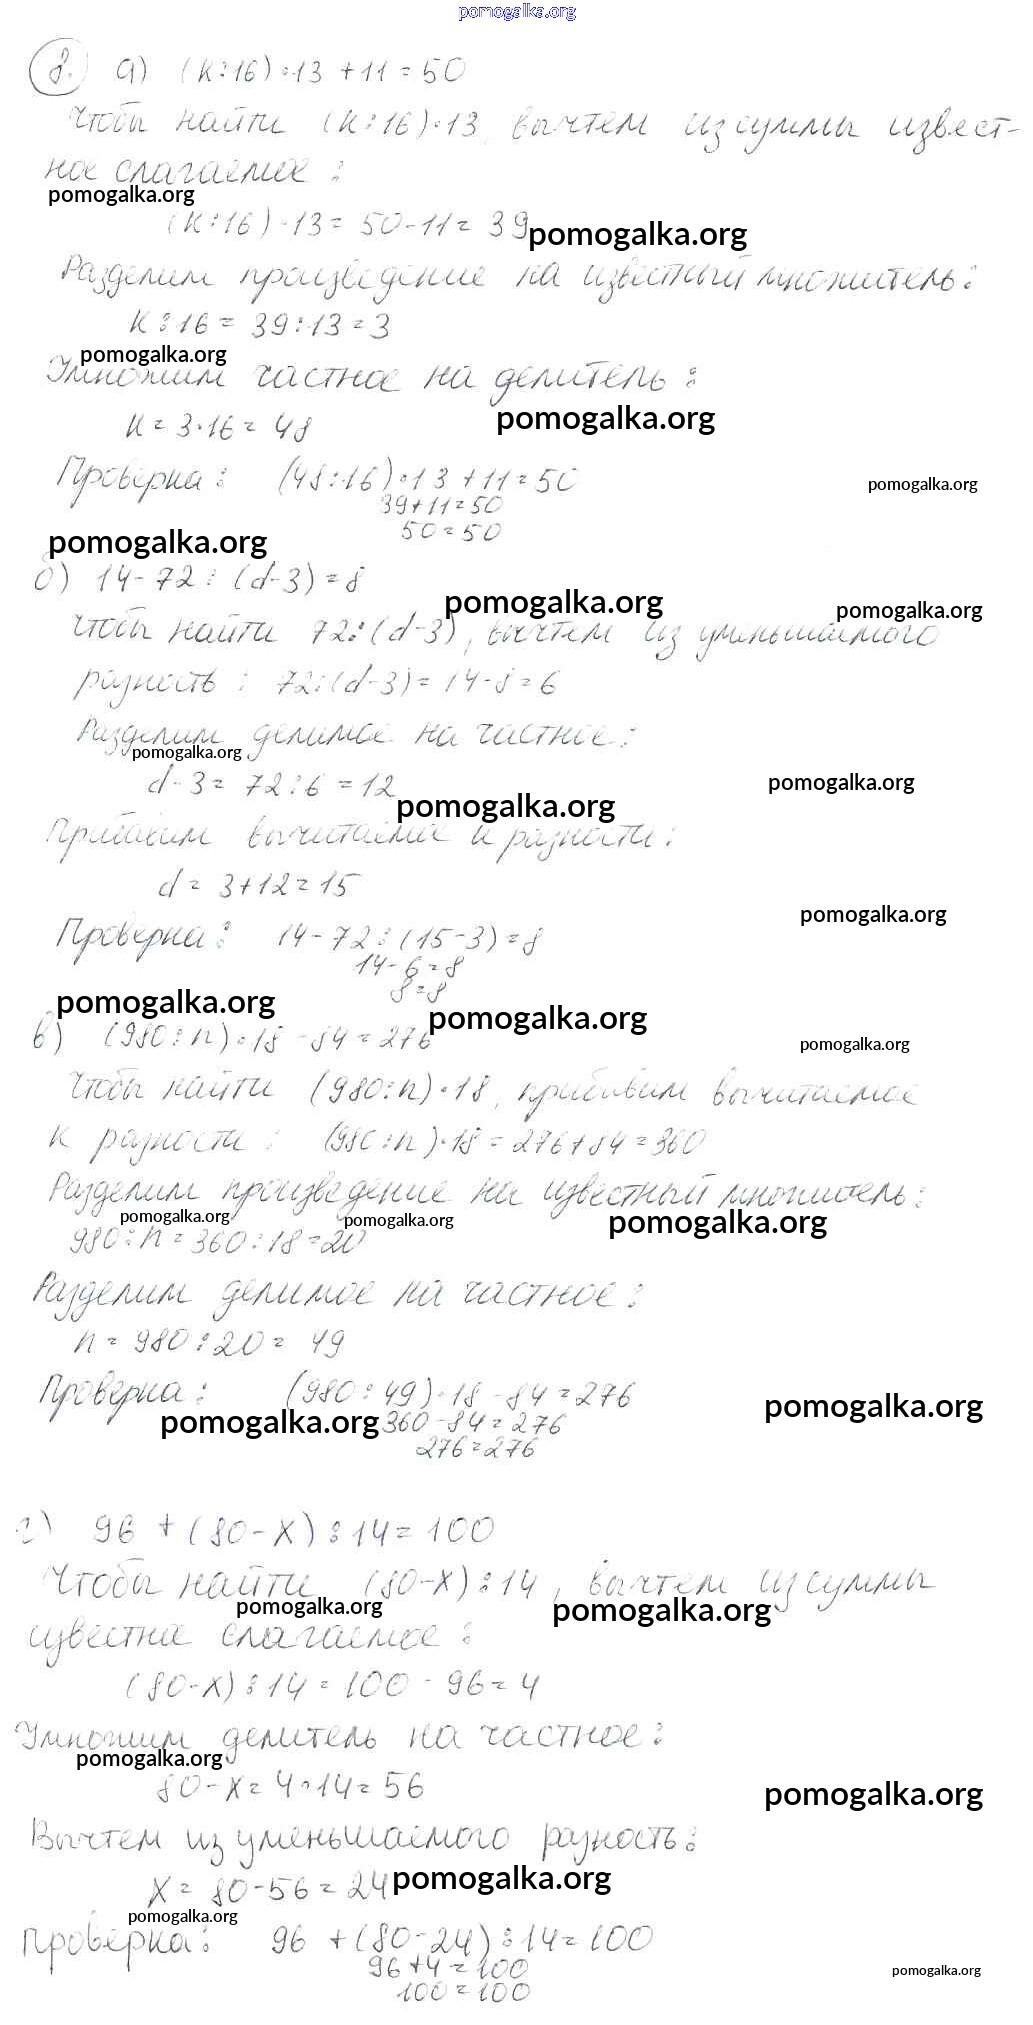 pomogalka.org
8. а) (k:16)·13+11=50
Чтобы найти (k:16)·13, вычтем из суммы извест-
ное слагаемое:
pomogalka.org
(k:16)·13=50-11=39
pomogalka.org
Разделим произведение на известный множитель:
k:16=39:13=3
pomogalka.org
Умножим частное на делитель:
pomogalka.org
k=3·16=48
Проверка: (48:16)·13+11=50
pomogalka.org
39+11=50
50=50
pomogalka.org
б) 14-72:(d-3)=8
pomogalka.org
pomogalka.org
Чтобы найти 72:(d-3), вычтем из уменьшаемого
разность: 72:(d-3)=14-8=6
Разделим делимое на частное:
pomogalka.org
d-3=72:6=12
pomogalka.org
pomogalka.org
Прибавим вычитаемое к разности:
d=3+12=15
pomogalka.org
Проверка: 14-72:(15-3)=8
14-6=8
8=8
pomogalka.org
pomogalka.org
в) (980:n)·18-84=276
pomogalka.org
Чтобы найти (980:n)·18, прибавим вычитаемое
к разности: (980:n)·18=276+84=360
Разделим произведение на известный множитель:
pomogalka.org
pomogalka.org
pomogalka.org
980:n=360:18=20
Разделим делимое на частное:
n=980:20=49
Проверка: (980:49)·18-84=276
pomogalka.org
pomogalka.org
360-84=276
276=276
г) 96+(80-x):14=100
Чтобы найти (80-x):14, вычтем из суммы
pomogalka.org
pomogalka.org
известное слагаемое:
(80-x):14=100-96=4
Умножим делитель на частное:
pomogalka.org
80-x=4·14=56
pomogalka.org
Вычтем из уменьшаемого разность:
x=80-56=24
pomogalka.org
pomogalka.org
Проверка: 96+(80-24):14=100
96+4=100
pomogalka.org
100=100